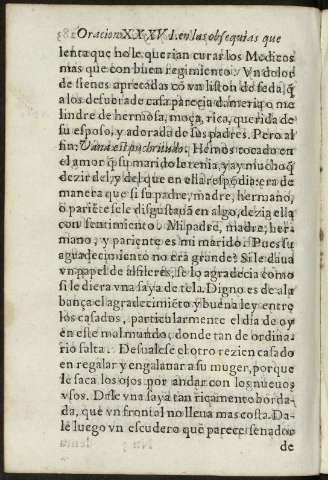 Oracion XXXVI. en las obsequias que
lenta que no le querian curar los Medicos
mas que con buen regimiento. Vn dolor
de sienes apretadas cō vn liston de seda, q̄
a los de fuera de casa parecia dāmeria o me
lindre de hermosa, moça, rica, querida de
su esposo, y adorada de sus padres. Pero al
fin: Vana est pulchritudo. Hemos tocado en
el amor q̄ su marido le tenia, y ay mucho q̄
dezir del, y del que en ella respōdia: era de
manera que si su padre, madre, hermano,
o pariēte se le disgustauā en algo, dezia ella
con sentimiento. Mi padre, madre, her-
mano, y pariente es mi marido. Pues su
agradecimiento no era grande? Si le daua
vn papel de alfileres, se lo agradecia como
si le diera vna saya de tela. Digno es de ala
bança el agradecimiēto y buena ley entre
los casados, particularmente el dia de oy
en este mal mundo, donde tan de ordina-
rio falta. Desualese el otro rezien casado
en regalar y engalanar a su muger, porque
le saca los ojos por andar con los nueuos
vsos. Dale vna saya tan ricamente borda-
da, que vn frontal no lleua mas costa. Da-
le luego vn escudero que parece senador
de